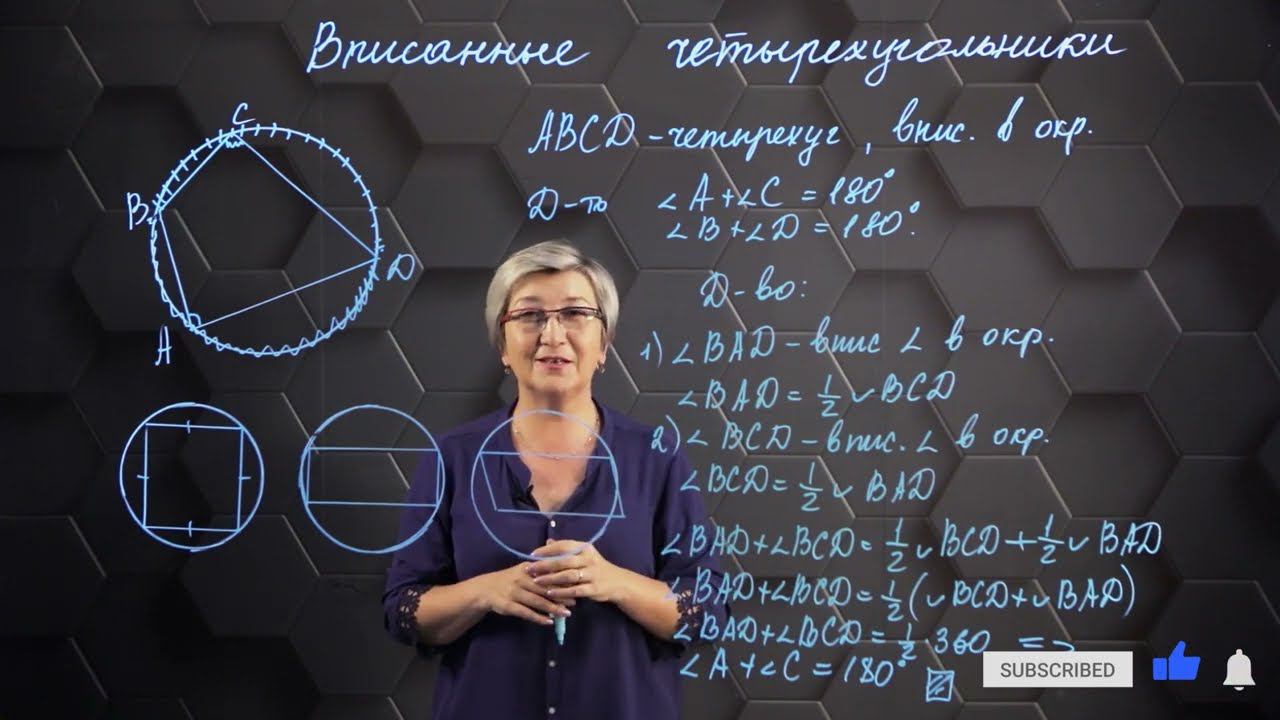 Вписанные четырехугольники
C
B
A
D
ABCD-четырехуг, впис. в окр.
Д-ть ∠A+∠C=180°
∠B+∠D=180°.
Д-во:
1) ∠BAD-впис ∠ в окр.
∠BAD=1/2 ◡BCD
2) ∠BCD-впис. ∠ в окр.
∠BCD=1/2 ◡ BAD
∠BAD+∠BCD=1/2 ◡ BCD+1/2 ◡ BAD
∠BAD+∠BCD=1/2(◡BCD+◡BAD)
∠BAD+∠BCD=1/2·360 =>
∠A+∠C=180°
SUBSCRIBED